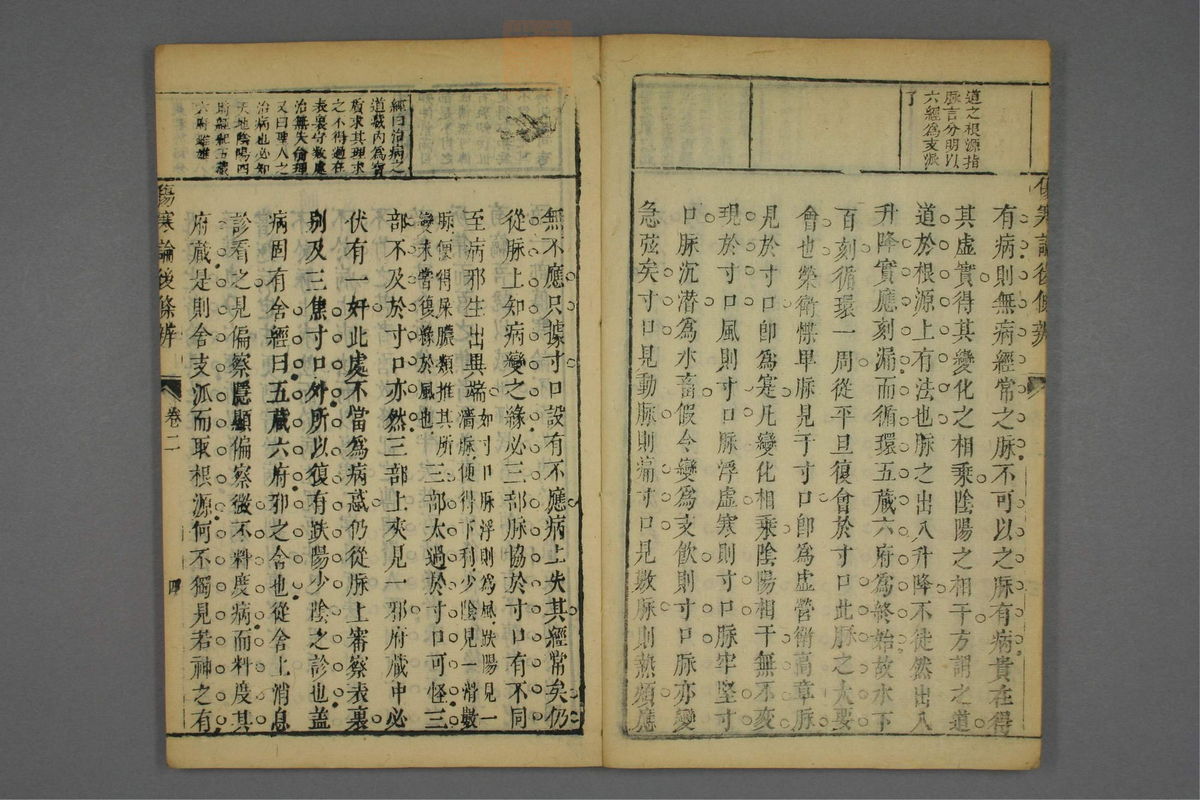 道之根源指
脉言分明以
六經為支派
了
傷寒論後條辨
有病則無病經常之脉不可以之脉有病貴在得
其虛實得其變化之相乘陰陽之相干方謂之道
道於根源上有法也脉之出入升降不徒然出入
升降實應刻漏而循環五藏六府為終始故水下
百刻循環一周從平旦復會於寸口此脉之大要
會也榮衛慄卑脉見于寸口卽為虛營衛高章脉
見於寸口卽為寔凡變化相乘陰陽相干無不変
現於寸口風則寸口脉浮虛寒則寸口脉牢堅寸
口脉沉潜為水畜假令變為支飲則寸口脉亦變
急弦矣寸口見動脉則痛寸口見数脉則熱類應
經曰治病之
道氣内為寳
循求其理求
之不得過在
表裏守数處
治無失俞理
又曰聖人之
治病也必知
天地陰陽四
時經紀五藏
六府雌雄
無不應只據寸口設有不應病上失其經常矣仍
從脉上知病變之緣必三部脉協於寸口有不同
至病邪生出異端如寸口脉浮則為風趺陽見一濇脉便得下利少陰見一滑數
脉便得屎膿類推其所變来嘗後緣於風也三部太過於寸口可怪三
部不及於寸口亦然三部上夾見一邪府藏中必
伏有一奸此處不當為病惑仍從脉上審察表裏
别及三焦寸口外所以復有趺陽少陰之診也蓋
病固有舍經曰五藏六府邪之舍也從舍上消息
診看之見偏察隱顯偏察微不料度病而料度其
府藏是則舍支派而取根源何不獨見若神之有
傷寒論後條辨
卷二
四